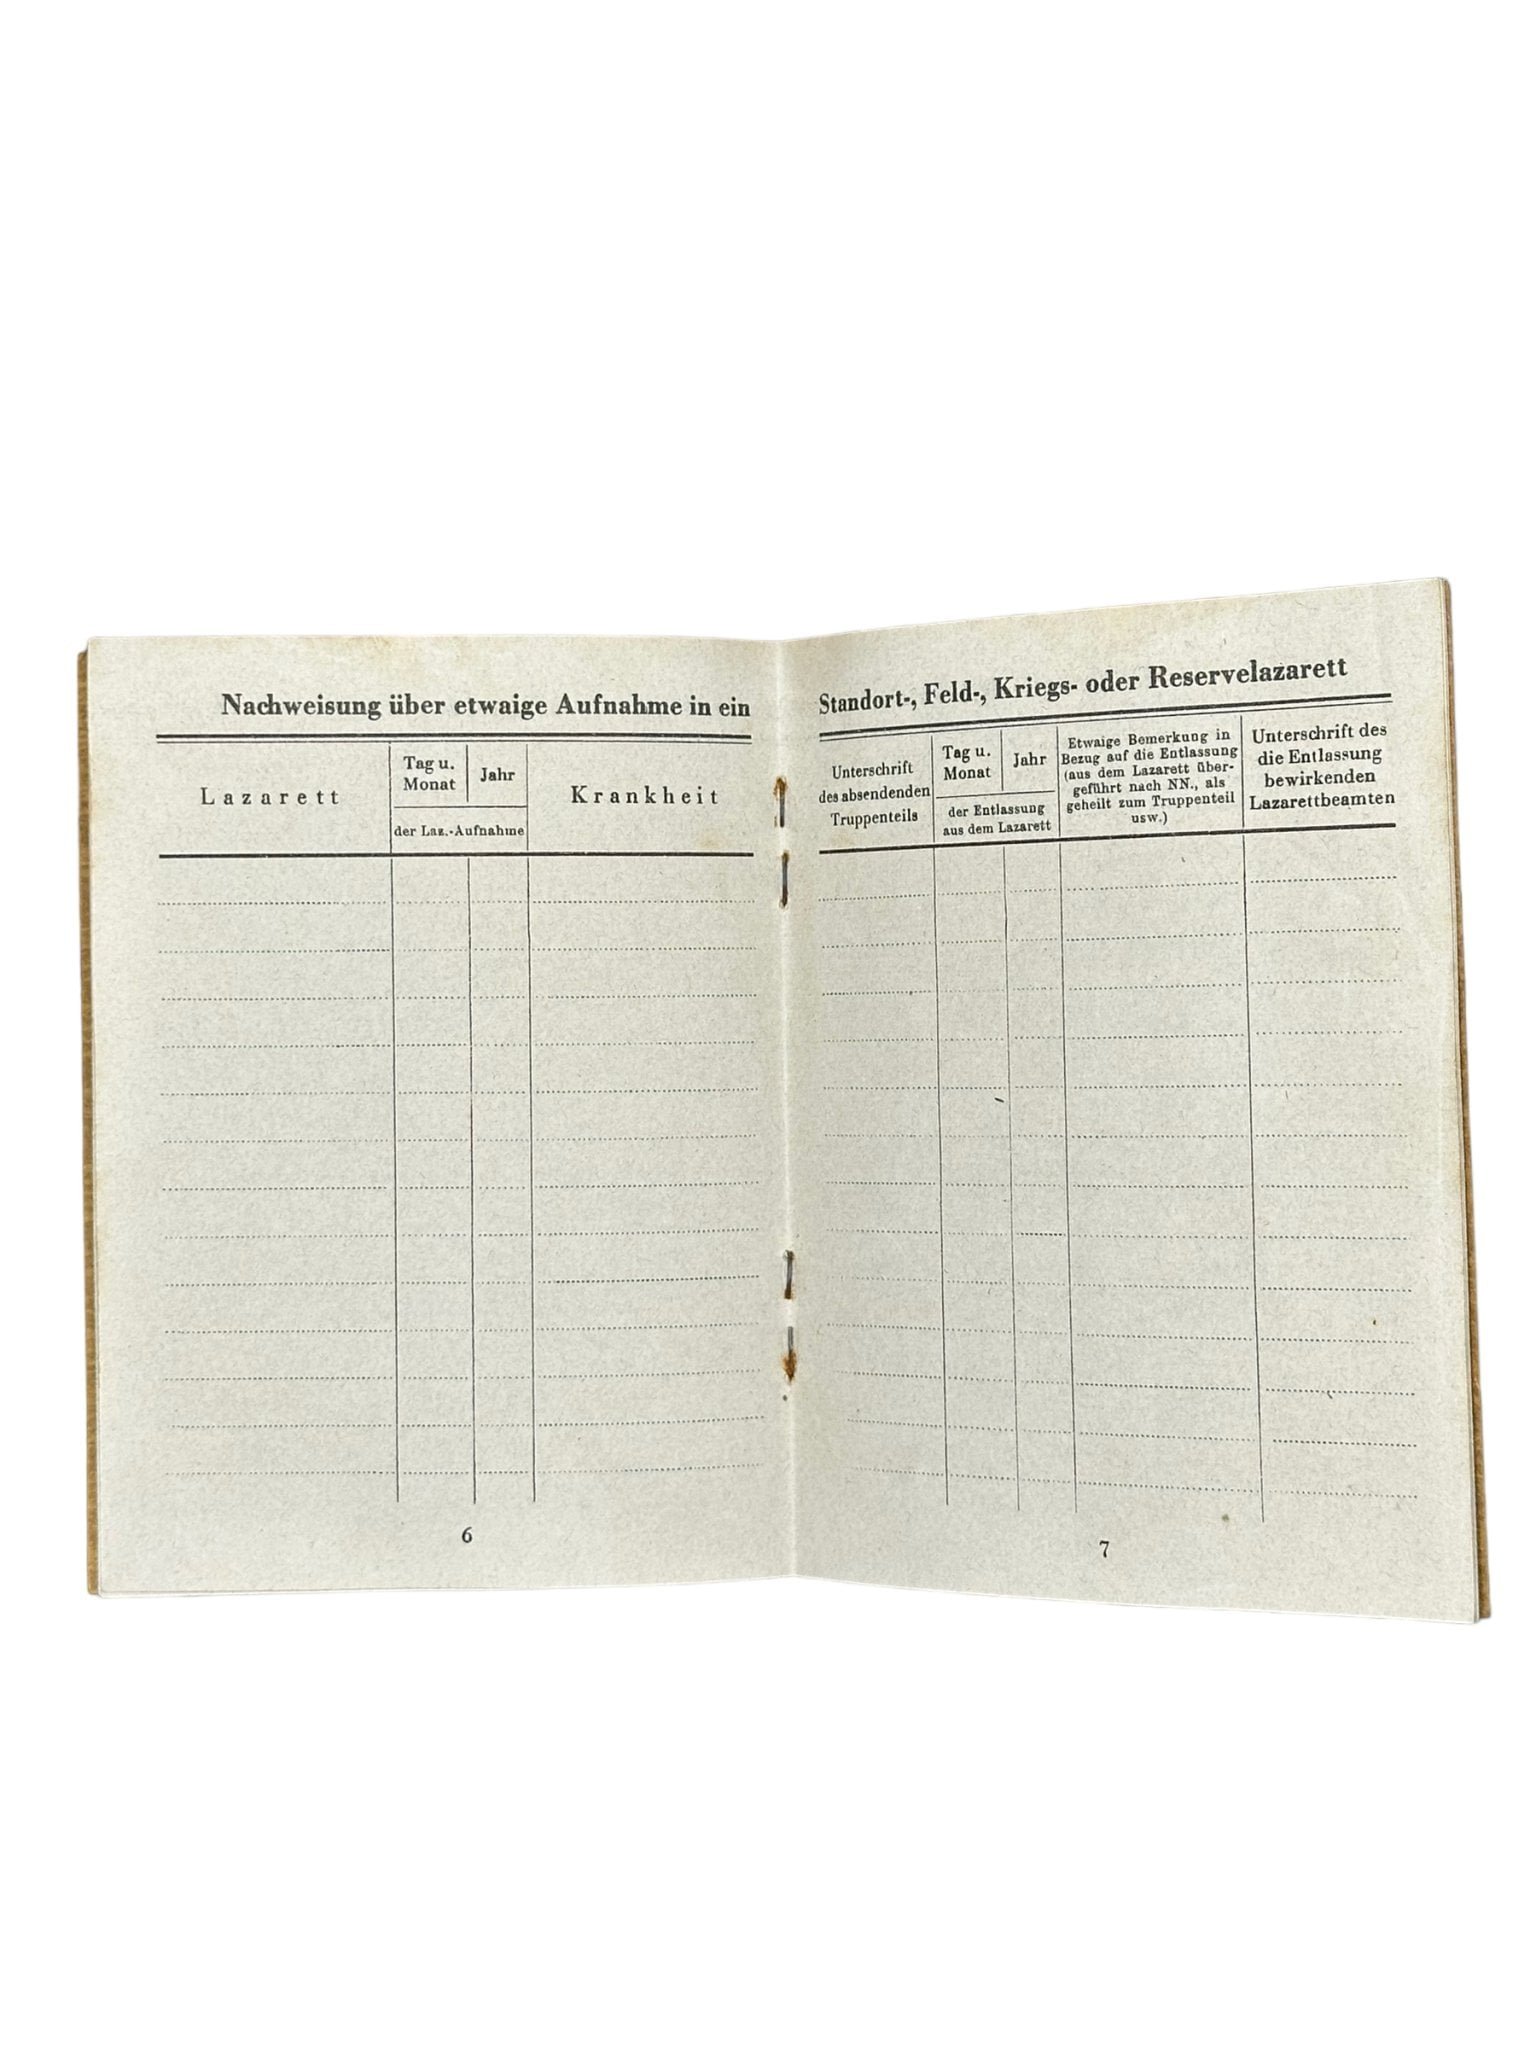 Nachweisung über etwaige Aufnahme in ein
Lazarett
Tag u.
Monat
Jahr
der Laz.-Aufnahme
Krankheit
6
Standort-, Feld-, Kriegs- oder Reservelazarett
Unterschrift
des absendenden
Truppenteils
Tag u.
Monat
Jahr
der Entlassung
aus dem Lazarett
Etwaige Bemerkung in
Bezug auf die Entlassung
(aus dem Lazarett über-
geführt nach NN., als
geheilt zum Truppenteil
usw.)
Unterschrift des
die Entlassung
bewirkenden
Lazarettbeamten
7